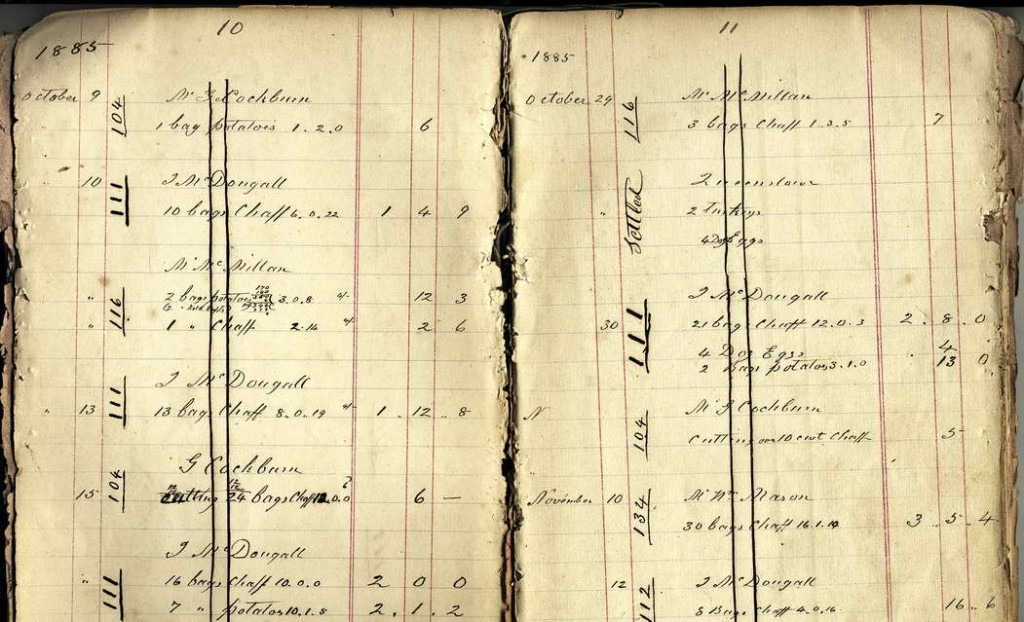 10
1885
October 9 104 Mr G Cochburn
1 bag potatoes 1.2.0 6
" 10 111 J McDougall
10 bags Chaff 6.0.22 1 4 9
Mr McMillan
" 116 2 bags potatoes 3.0.8 4/- 12 3
" 1 " Chaff 2.14 4/- 2 6
J McDougall
" 13 111 13 bags Chaff 8.0.19 4/- 1.12.8
G Cochburn
15 104 Cutting 24 bags Chaff 12.0.0 6 —
J McDougall
" 111 16 bags Chaff 10.0.0 2 0 0
7 " potatos 10.1.8 2.1.2
11
1885
October 29 116 Mr McMillan
3 bags Chaff 1.3.5 7
Settled Queenslaw
" 2 Turkeys
4 Doz Eggs
J McDougall
30 111 21 bags Chaff 12.0.3 2.8.0
4 Doz Eggs 4
2 Bags potatos 3.1.0 13 0
N 104 Mr G Cochburn
Cutting over 10 cwt Chaff 5
November 10 134 Mr Wm Mason
30 bags Chaff 16.1.10 3.5.4
12 112 J McDougall
8 Bags Chaff 4.0.16 16.6